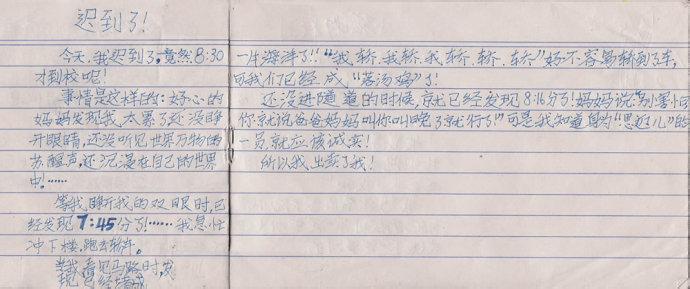 迟到了!
今天,我迟到了,竟然8:30
才到校呢!
事情是这样的:好心的
妈妈发现我太累了还没睁
开眼睛,还没听见世界万物的
苏醒声,还沉浸在自己的世界
中!……
等我睁开我的双眼时,已
经发现7:45分了!……我急忙
冲下楼,跑去轿车。
当我看见马路时,发
现已经堵成
一片海洋了!!“我轿、我轿、我轿、轿、轿”好不容易轿到了车,
可我们已经成“落汤鸡”了!
还没进隧道的时候,就已经发现8:16分了!妈妈说:“别害怕
你就说爸爸妈妈叫你叫晚了就行了!”可是我知道身为“思远儿”的
一员,就应该诚实!
所以我出卖了我!